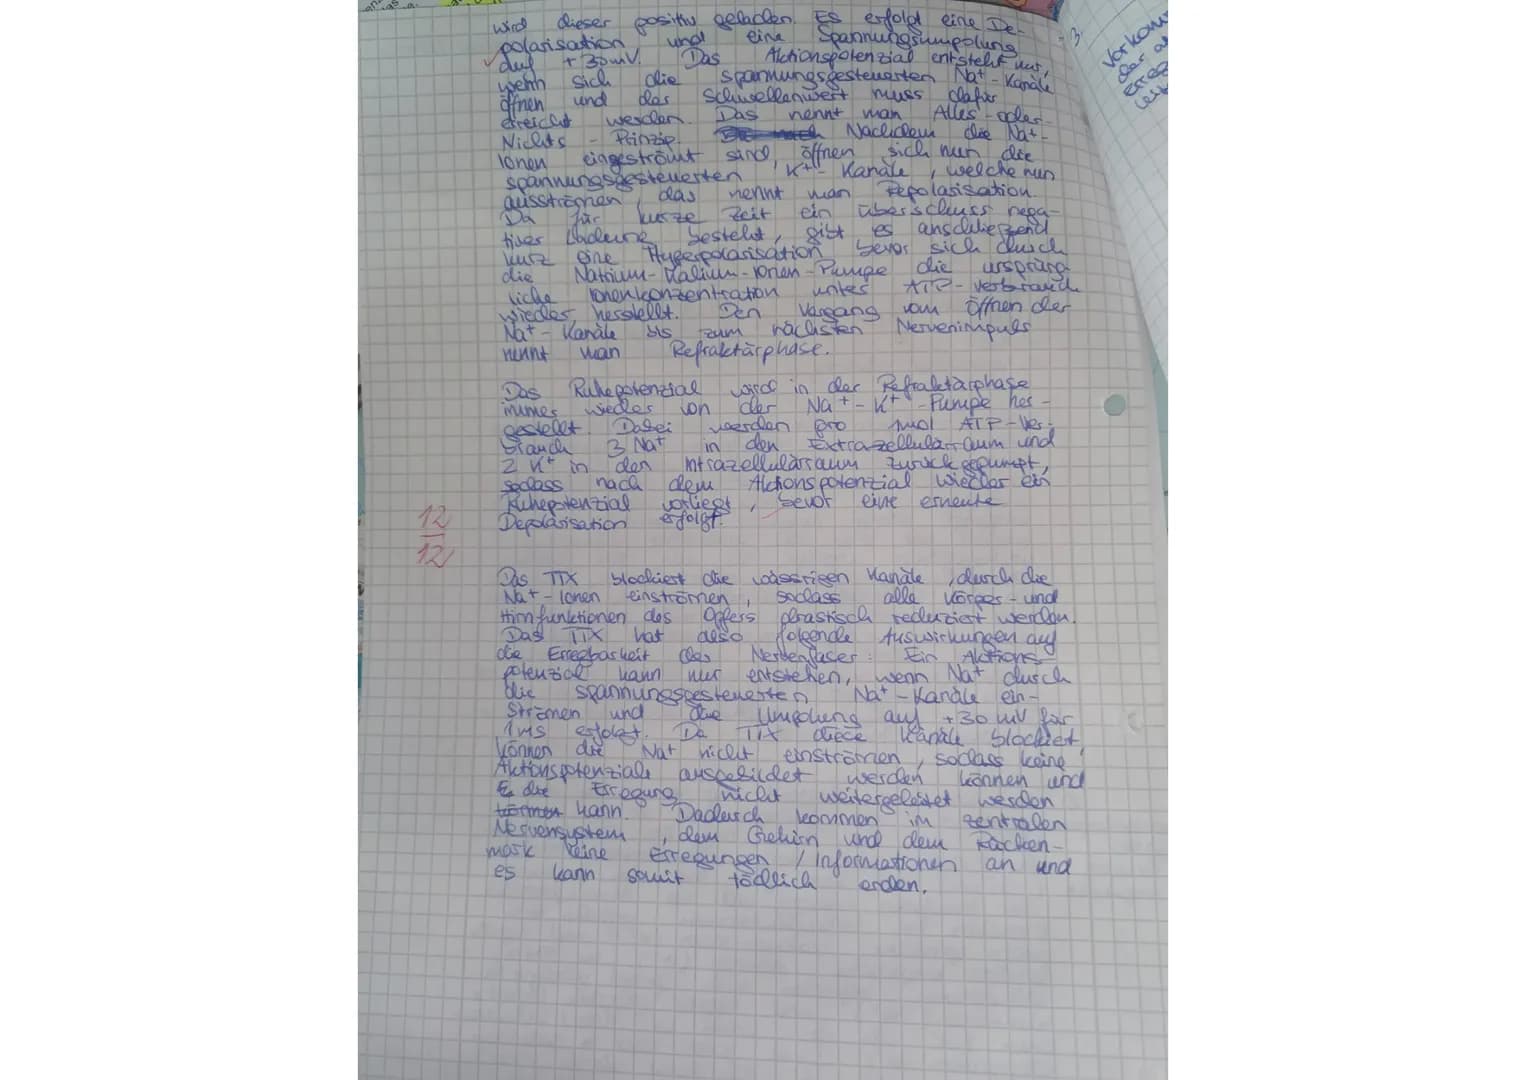 wird dieser positiv geladen. Es erfolgt eine De-
polarisation und eine Spannungsumpolung
auf +30mV. Das Aktionspotenzial entsteht nur,
wenn sich die spannungsgesteuerten Na+-Kanäle
öffnen und der Schwellenwert muss dafür
erreicht werden. Das nennt man Alles-oder-
Nichts-Prinzip. Nachdem die Na+-
Ionen eingeströmt sind, öffnen sich nun die
spannungsgesteuerten K+-Kanäle, welche nun
ausströmen, das nennt man Repolarisation.
Da für kurze Zeit ein überschuss nega-
tiver Ladung besteht, gibt es anschließend
kurz eine Hyperpolarisation, bevor sich durch
die Natrium-Kalium-Ionen-Pumpe die ursprüng-
liche Ionenkonzentration unter ATP-Verbrauch
wieder herstellt. Den Vorgang vom Öffnen der
Na+-Kanäle bis zum nächsten Nervenimpuls
nennt man Refraktärphase.
Das Ruhepotenzial wird in der Refraktärphase
immer wieder von der Na+-K+-Pumpe her-
gestellt. Dabei werden pro mol ATP-Ver-
brauch 3 Na+ in den Extrazellularraum und
2 K+ in den Intrazellulärraum zurückgepumpt,
sodass nach dem Aktionspotenzial wieder ein
Ruhepotenzial vorliegt, bevor eine erneute
Depolarisation erfolgt.
12
12
Das TTX blockiert die wässrigen Kanäle, durch die
Na+-Ionen einströmen, sodass alle Körper- und
Hirnfunktionen des Opfers drastisch reduziert werden.
Das TTX hat also folgende Auswirkungen auf
die Erregbarkeit der Nervenfaser: Ein Aktions-
potenzial kann nur entstehen, wenn Na+ durch
die spannungsgesteuerten Na+-Kanäle ein-
strömen und die Umpolung auf +30 mV für
1ms erfolgt. Da TTX diese Kanäle blockiert,
können die Na+ nicht einströmen, sodass keine
Aktionspotenziale ausgebildet werden können und
die Erregung nicht weitergeleitet werden
kann. Dadurch kommen im zentralen
Nervensystem, dem Gehirn und dem Rücken-
mark keine Erregungen / Informationen an und
es kann somit tödlich enden.
3.
Vorkom
der